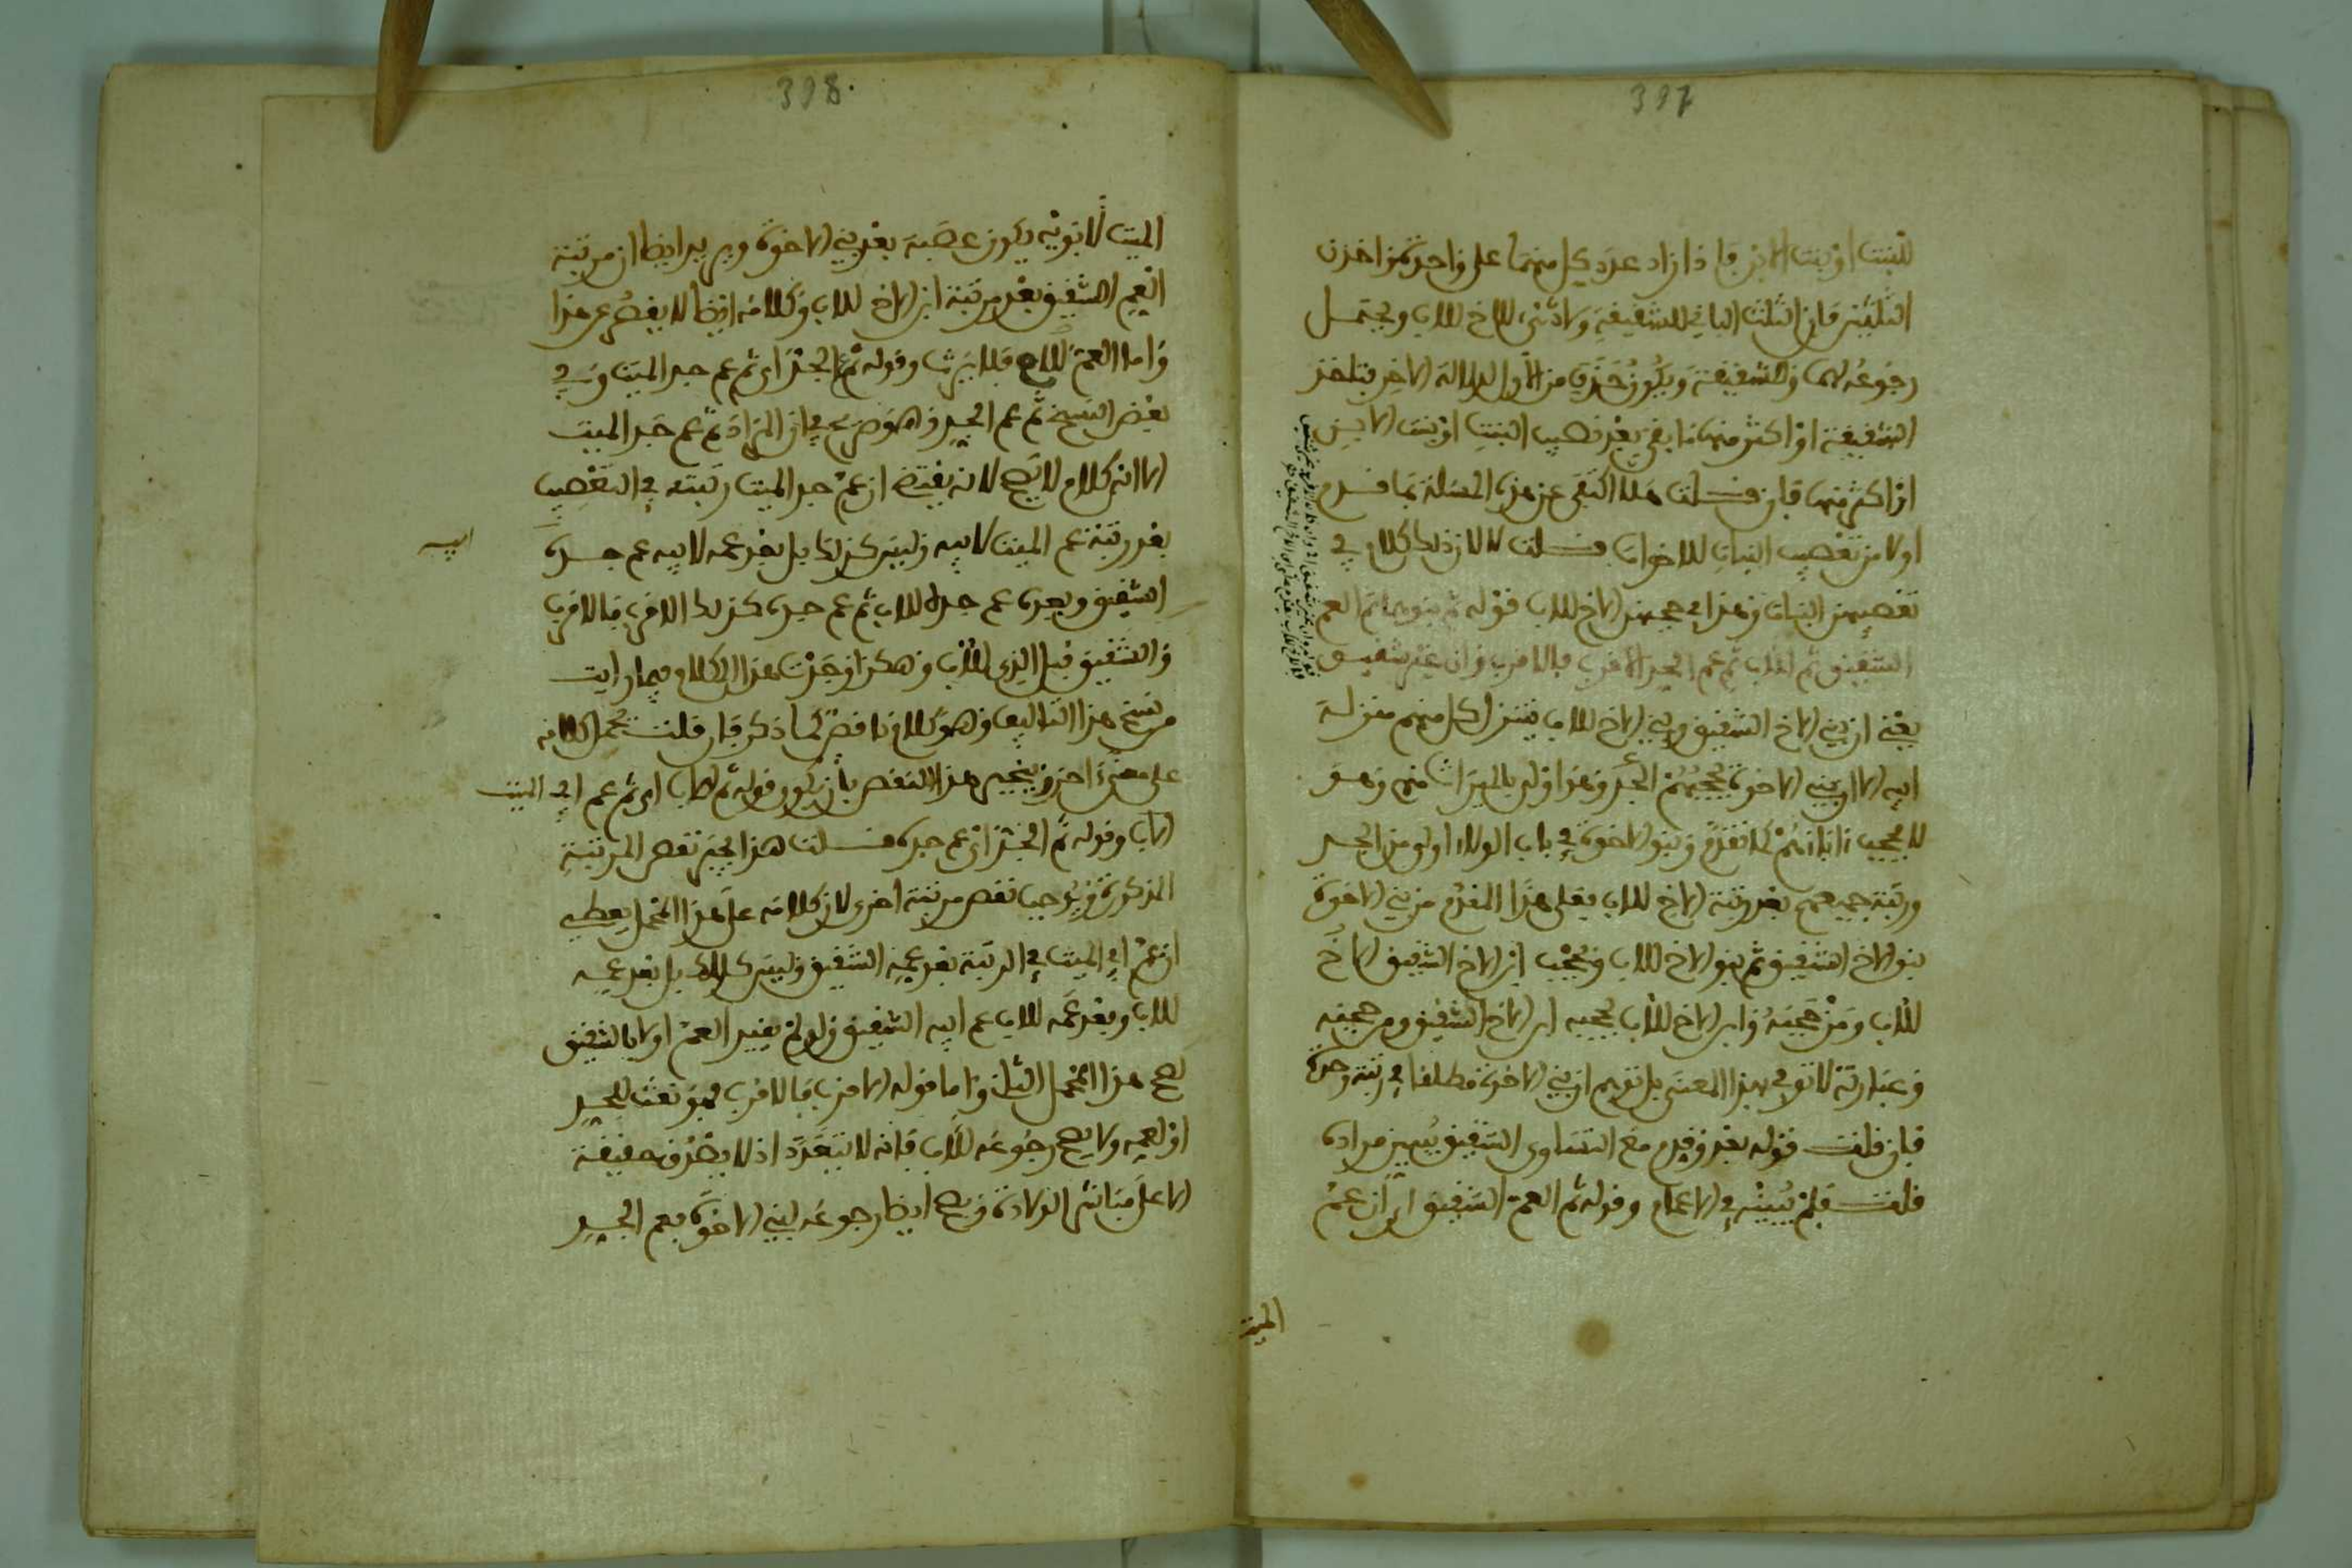 397
للبنت او بنت الابن فاذا زاد عدد كل منهما على واحدة اخذن
الثلثين فان الثلث الباقي للشقيقة ولا شيء للاخ للاب ويحتمل
رجوعه لهما وللشقيقة ويكون حذف من الاول لدلالة الاخر فتاخذ
الشقيقة او اكثر منها ما بقي بعد نصيب البنت او بنت الابن
او اكثر منها فان قلت هلا اكتفى عن هذه المسئلة بما قدم
اولا من تعصيب البنات للاخوات قلت لا لان ذلك كلام في
تعصيبهن البنات وهذا في حجبهن الاخ للاب قوله ثم بنوهما ثم العم
الشقيق ثم للاب ثم عم الجد الاقرب فالاقرب وان غير شقيق
يعني ان بني الاخ الشقيق وبني الاخ للاب يتنزل كل منهم منزلة
ابيه الا ان بني الاخوة يحجبهم الجد وهذا اولى بالميراث منهم وهو
لا يحجب اباءهم كما تقدم وبنو الاخوة في باب الولاء اولى من الجد
ورتبة جميعهم بعد رتبة الاخ للاب فعلى هذا المقدم من بني الاخوة
بنو الاخ الشقيق ثم بنو الاخ للاب ويحجب ابن الاخ الشقيق الاخ
للاب ومن حجبه وابن الاخ للاب يحجبه ابن الاخ الشقيق ومن حجبه
وعبارته لا توفي بهذا المعنى بل توهم ان بني الاخوة مطلقا في رتبة واحدة
فان قلت قوله بعد وقدم مع التساوي الشقيق يبين مراده
قلت فلم يبينه في الاعمام وقوله ثم العم الشقيق اي ان عم
الميت
398
الميت لابويه يكون عصبة بعد بني الاخوة ويريد ايضا ان مرتبة
العم الشقيق بعد مرتبة ابن الاخ للاب وكلامه ايضا لا يفصح عن هذا
واما العم للام فلا يرث وقوله ثم عم الجد اي ثم عم جد الميت وفي
بعض النسخ ثم عم الجد وهو صريح في ان المراد ثم عم جد الميت
الا انه كلام لا يصح لانه يقتضي ان عم جد الميت رتبته في التعصيب
بعد رتبة عم الميت لابيه وليس كذلك بل بعد عمه لابيه عم جده
ابيه
الشقيق وبعده عم جده للاب ثم عم جده كذلك الاقرب فالاقرب
والشقيق قبل الذي للاب وهكذا وجدت هذا الكلام فيما رايت
من نسخ هذا التاليف وهو كلام ناقص كما ذكر فان قلت يحمل كلامه
على معنى اخر وينجبر هذا النقص بان يكون قوله ثم للاب اي ثم عم ابي الميت
الاب وقوله ثم الجد اي عم جده قلت هذا يجبر نقص المرتبة
المذكورة ويوجب نقص مرتبة اخرى لان كلامه على هذا المحمل يعطي
ان عم ابي الميت في الرتبة بعد عمه الشقيق وليس كذلك بل بعد عمه
للاب وبعد عمه للاب عم ابيه الشقيق ولو لم يقيد العم اولا بالشقيق
لصح هذا المحمل الثاني واما قوله الاقرب فالاقرب فهو نعت للجد
او لعمه ولا يصح رجوعه للاب فانه لا يتعدد اذ لا يصدق حقيقة
الا على مباشر الولادة ويصح ايضا رجوعه لبني الاخوة فعم الجد